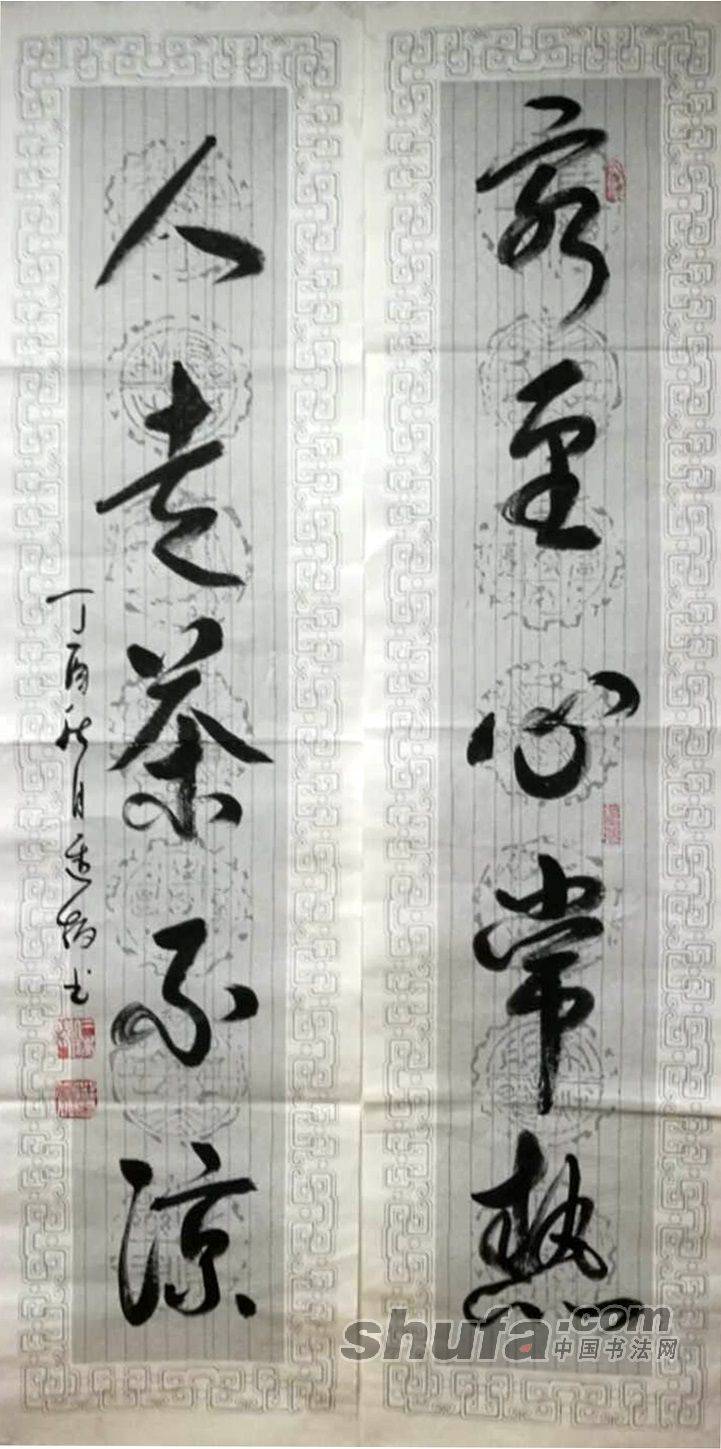 客至心常熱
人走茶不涼
丁酉秋月
书
shufa.com
中国书法网